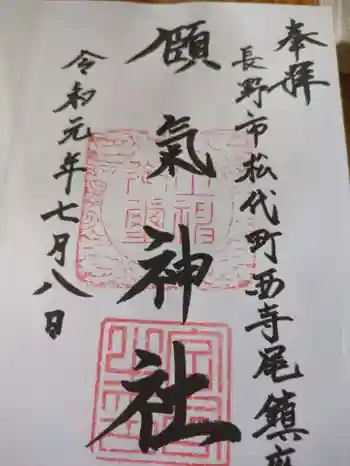 奉拝
長野市松代町西寺尾鎮座
頤氣神社
令和元年七月八日